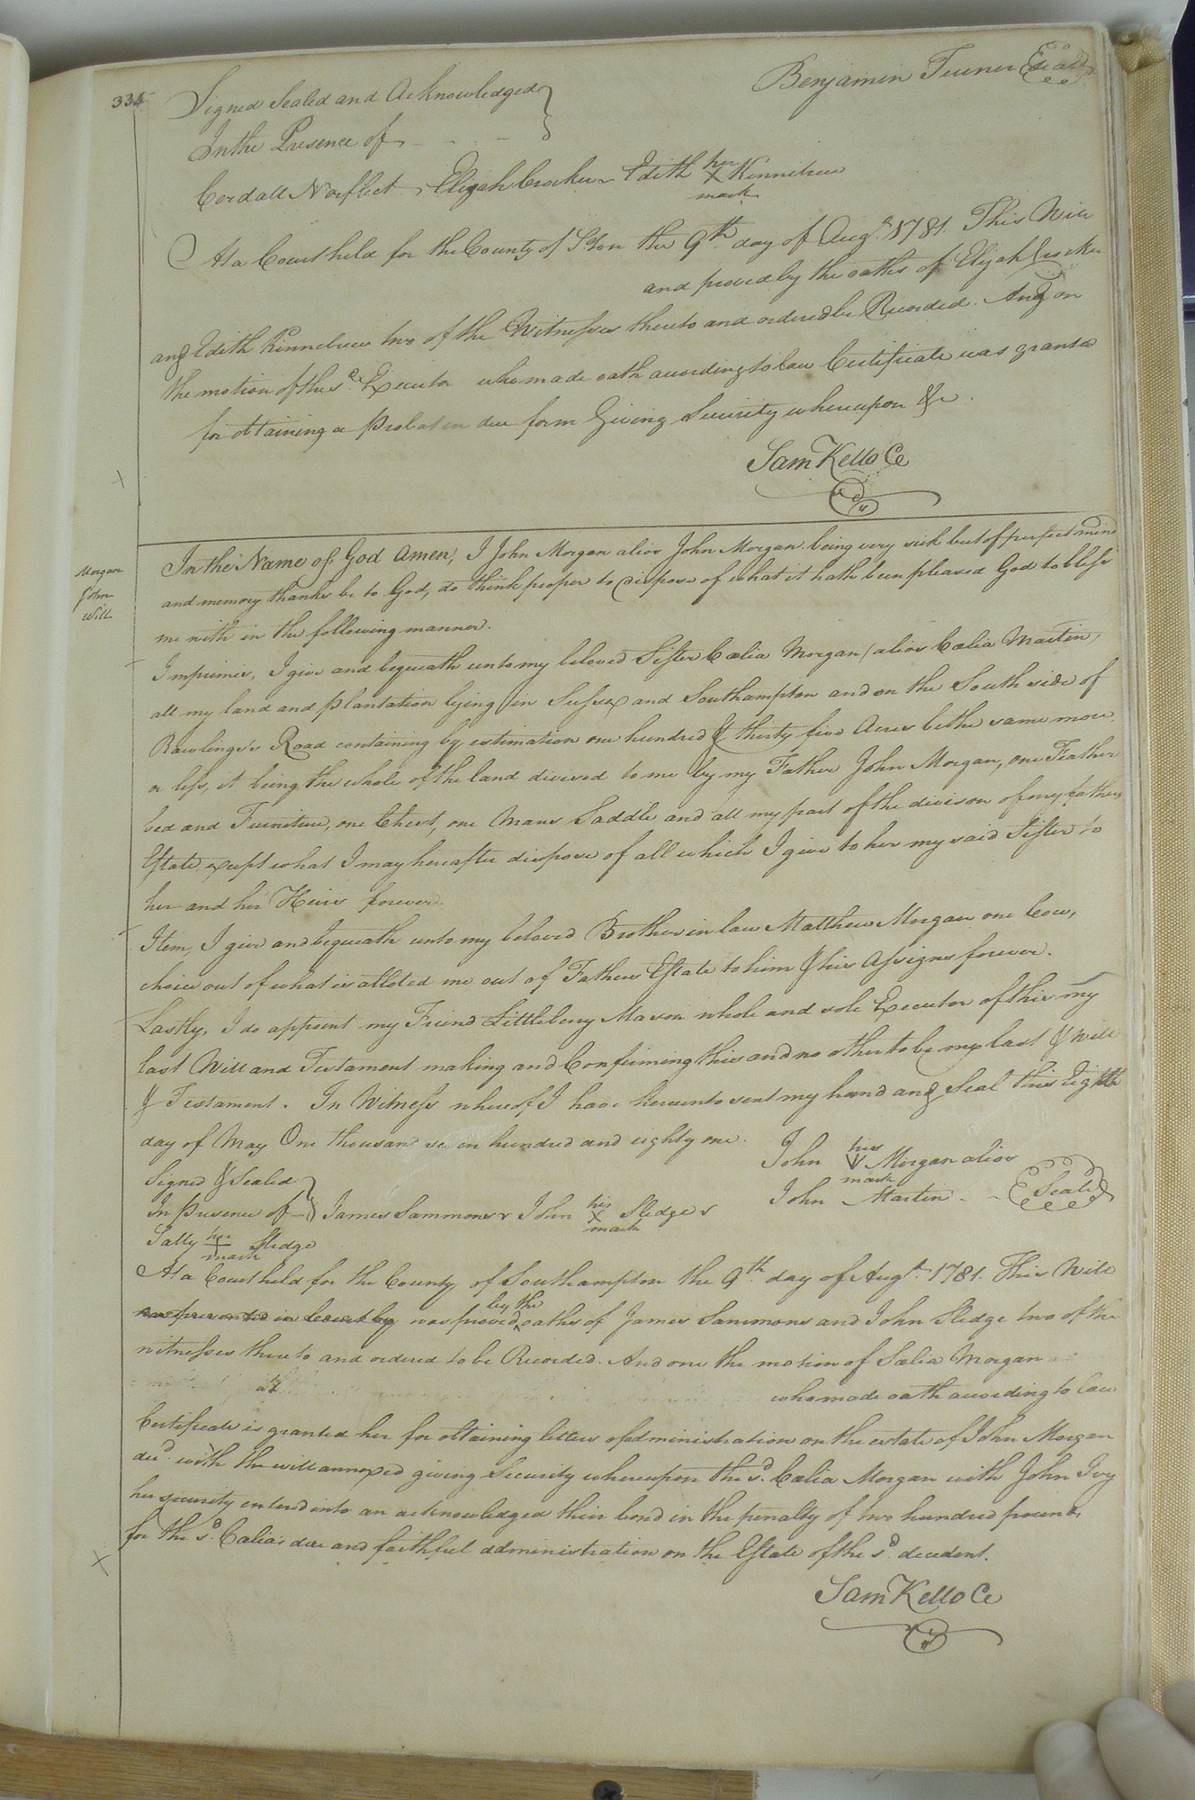 334
Benjamin Turner (Seal)
Signed Sealed and Acknowledged }
In the Presence of
Cordall Norfleet, Elijah Crocker, Edith her X mark Kinnebrew
At a Court held for the County of S:ton the 9th day of Augt 1781. This Will
and proved by the oaths of Elijah Crocker
and Edith Kinnebrew two of the Witnesses thereto and ordered be Recorded. And on
the motion of the sd Executor who made oath according to law Certificate was granted
for obtaining a Probat in due form Giving Security whereupon &c.
Sam Kello Cc
Morgan
John
Will
In the Name of God Amen, I John Morgan alias John Morgan being very sick but of perfect mind
and memory thanks be to God, do think proper to dispose of what it hath been pleased God to bless
me with in the following manner.
Imprimis, I give and bequeath unto my beloved Sister Cælia Morgan (alias Cælia Martin,
all my land and plantation lying in Sussex and Southampton and on the South side of
Rawlings's Road containing by estimation one hundred & thirty five Acres be the same more
or less, it being the whole of the land devised to me by my Father John Morgan, one Feather
bed and Furniture, one Chest, one Mans Saddle and all my part of the divison of my fathers
Estate except what I may hereafter dispose of all which I give to her my said Sister to
her and her Heirs forever.
Item, I give and bequeath unto my beloved Brother in law Matthew Morgan one Cow,
choice out of what is alloted me out of Fathers Estate to him & his Assigns forever.
Lastly, I do appoint my Friend Littleberry Mason whole and sole Executor of this my
last Will and Testament making and Confirming this and no other to be my last & Will
& Testament. In Witness whereof I have hereunto sent my hand and Seal this Eighth
day of May One thousan seven hundred and eighty one.
John his mark Morgan alias
John Martin (Seal)
Signed & Sealed }
In Presence of James Sammons John his X mark Sledge
Sally her mark Sledge
At a Court held for the County of Southampton the 9th day of Augt 1781. This Will
was presented in Court by was proved by the oaths of James Sammons and John Sledge two of the
witnesses thereto and ordered to be Recorded. And one the motion of Sælia Morgan
who made oath according to law
Certificate is granted her for obtaining letters of administration on the estate of John Morgan
decd with the will annexed giving Security whereupon the sd Cælia Morgan with John Ivy
her security entered into an acknowledged their bond in the penalty of two hundred pounds
for the sd Cælia's due and faithful administration on the Estate of the sd decedent.
Sam Kello Cc